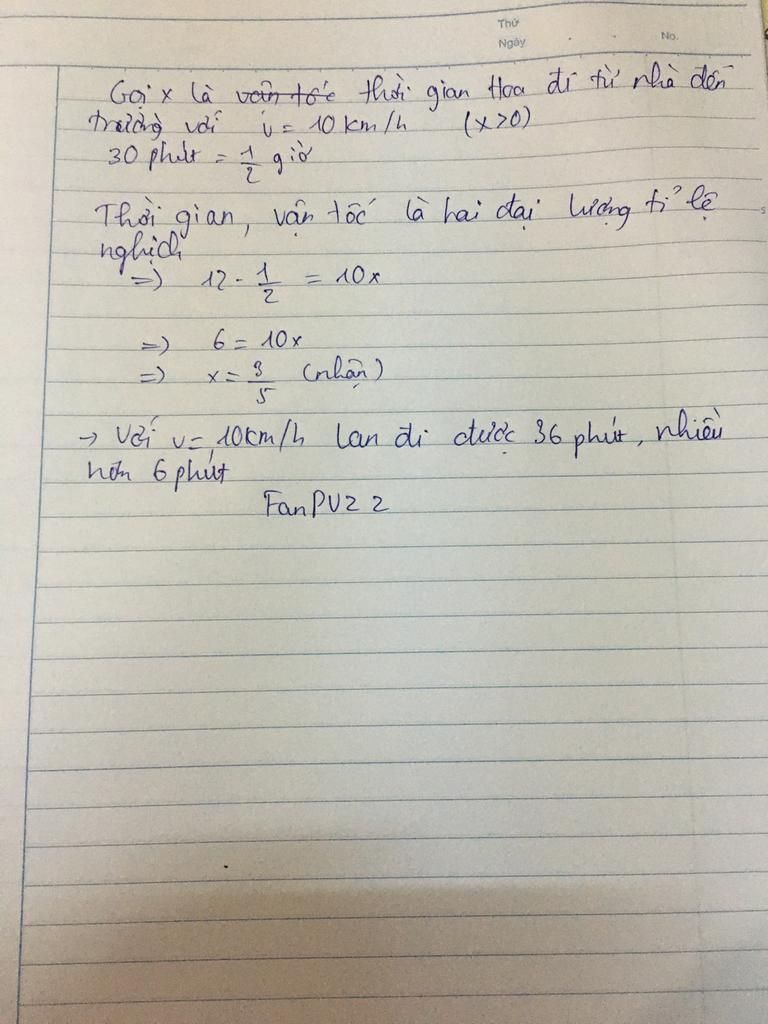 Thứ
Ngày
No.
Gọi x là vận tốc thời gian Hoa đi từ nhà đến
trường với v = 10 km/h (x>0)
30 phút = 1/2 giờ
Thời gian, vận tốc là hai đại lượng tỉ lệ
nghịch
=> 12 · 1/2 = 10x
=> 6 = 10x
=> x = 3/5 (nhận)
→ Với v = 10km/h Lan đi được 36 phút, nhiều
hơn 6 phút
FanPVZ 2